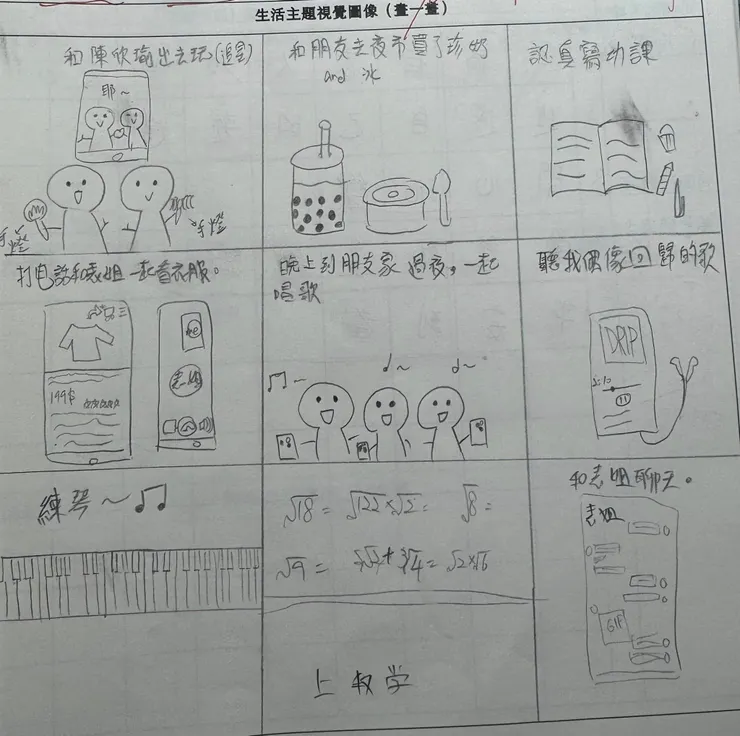 生活主題視覺圖像（畫一畫）
和陳欣瑜出去玩(追星)
耶～
手燈
手燈
和朋友去夜市買了珍奶
and 冰
認真寫功課
打电話和表姐一起看衣服。
199$
me
表姐
晚上到朋友家過夜，一起
唱歌
聽我偶像回歸的歌
DRIP
練琴～
√18 =
√8 =
√9 =
上数学
和表姐聊天。
表姐
GIF